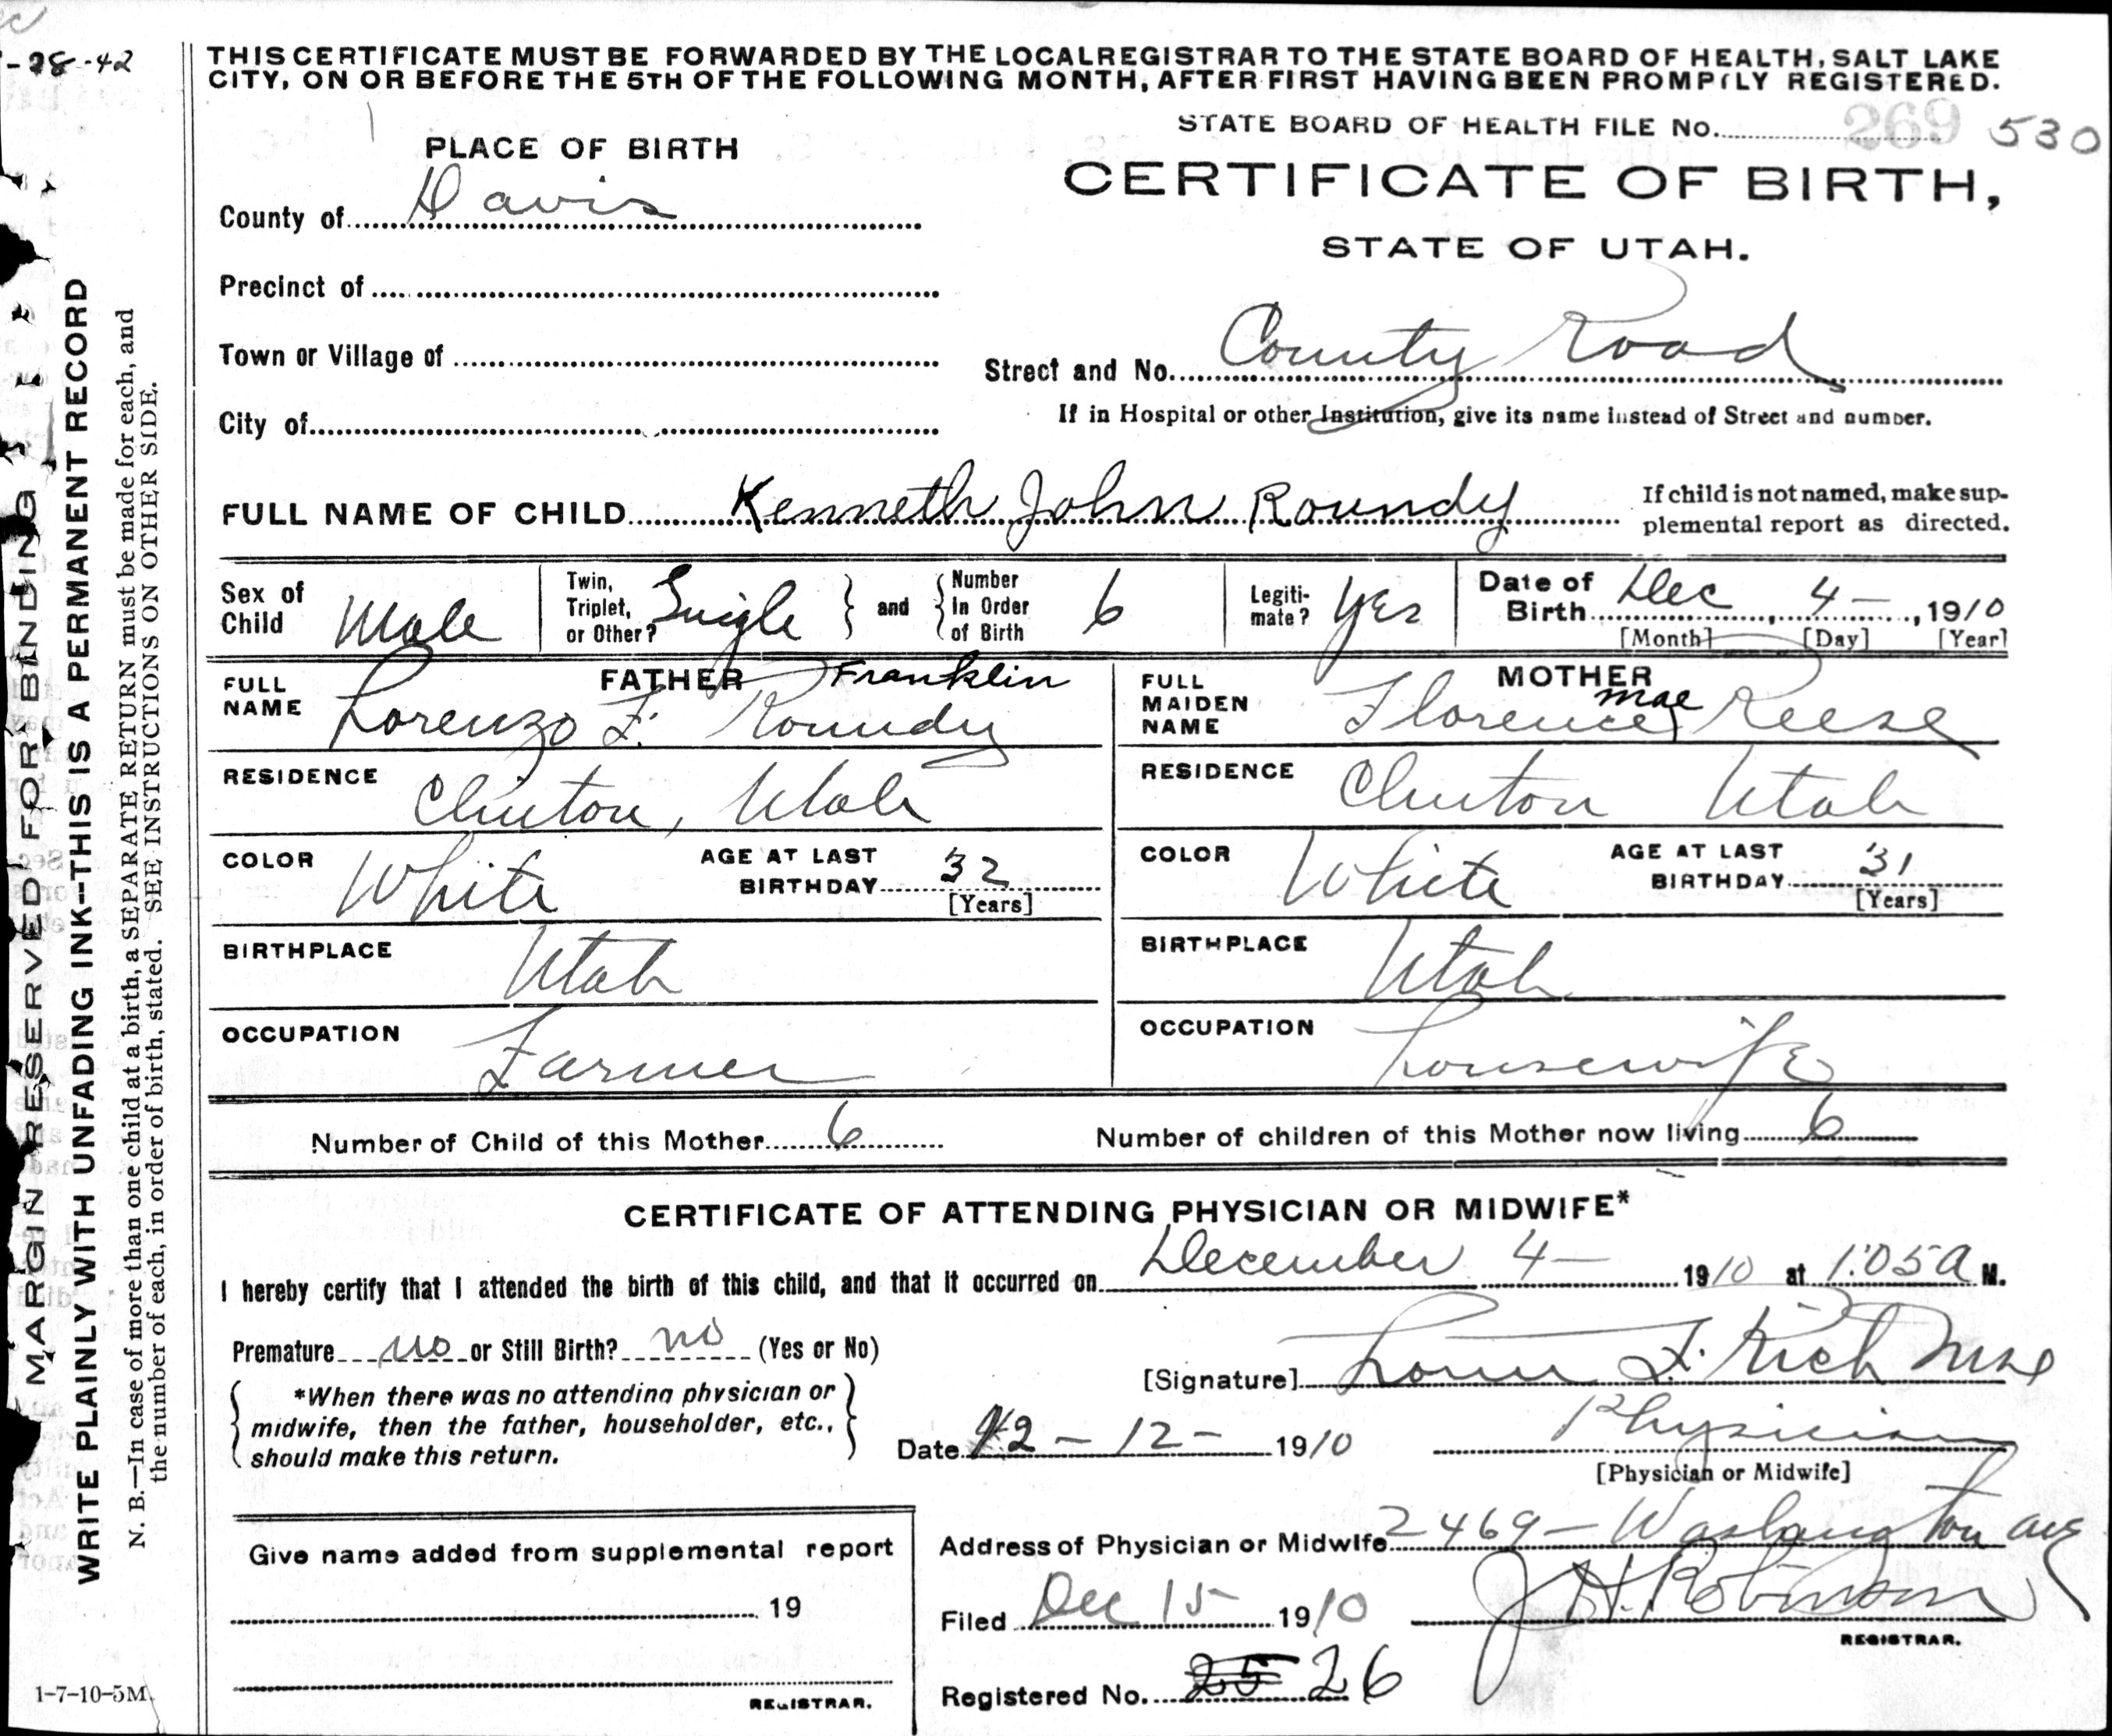 -28-42
THIS CERTIFICATE MUST BE FORWARDED BY THE LOCAL REGISTRAR TO THE STATE BOARD OF HEALTH, SALT LAKE
CITY, ON OR BEFORE THE 5TH OF THE FOLLOWING MONTH, AFTER FIRST HAVING BEEN PROMPTLY REGISTERED.
STATE BOARD OF HEALTH FILE No. 269 530
PLACE OF BIRTH
CERTIFICATE OF BIRTH,
STATE OF UTAH.
County of Davis
Precinct of
Town or Village of
Street and No. County Road
City of
If in Hospital or other Institution, give its name instead of Street and number.
FULL NAME OF CHILD Kenneth John Roundy
If child is not named, make sup-
plemental report as directed.
Sex of Child Male
Twin, Triplet, or Other? Single } and { Number In Order of Birth 6
Legiti-mate? Yes
Date of Birth Dec 4 -, 1910
[Month] [Day] [Year]
FATHER
FULL NAME Lorenzo F. Roundy Franklin
RESIDENCE Clinton, Utah
COLOR White AGE AT LAST BIRTHDAY 32
[Years]
BIRTHPLACE Utah
OCCUPATION Farmer
MOTHER
FULL MAIDEN NAME Florence Mae Reese
RESIDENCE Clinton Utah
COLOR White AGE AT LAST BIRTHDAY 31
[Years]
BIRTHPLACE Utah
OCCUPATION housewife
Number of Child of this Mother 6 Number of children of this Mother now living 6
CERTIFICATE OF ATTENDING PHYSICIAN OR MIDWIFE*
I hereby certify that I attended the birth of this child, and that it occurred on December 4 - 1910 at 1:05 A M.
Premature no or Still Birth? no (Yes or No)
*When there was no attending physician or
midwife, then the father, householder, etc.,
should make this return.
[Signature] F. Rich
Date 12 - 12 - 1910 Physician
[Physician or Midwife]
Address of Physician or Midwife 2469 - Washington ave
Give name added from supplemental report
19
REGISTRAR.
Filed Dec 15 1910 J H. Robinson
REGISTRAR.
Registered No. 25 26
MARGIN RESERVED FOR BINDING
WRITE PLAINLY WITH UNFADING INK--THIS IS A PERMANENT RECORD
N. B.—In case of more than one child at a birth, a SEPARATE RETURN must be made for each, and
the number of each, in order of birth, stated. SEE INSTRUCTIONS ON OTHER SIDE.
1-7-10-5M.